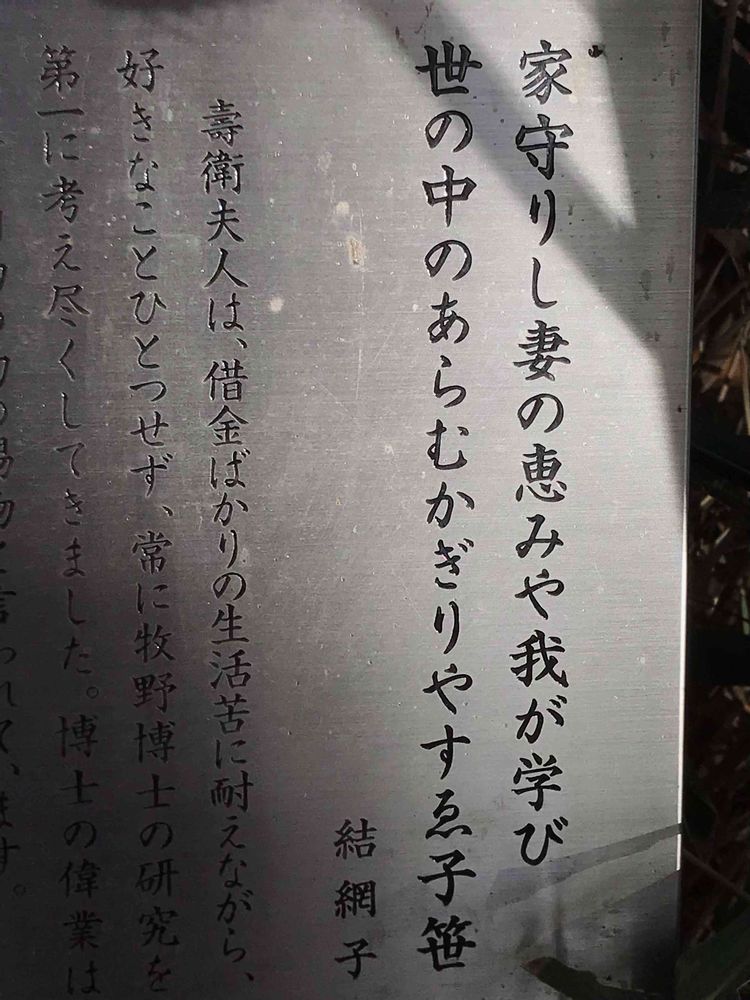 家守りし妻の恵みや我が学び
世の中のあらむかぎりやすゑ子笹
結網子
壽衛夫人は、借金ばかりの生活苦に耐えながら、
好きなことひとつせず、常に牧野博士の研究を
第一に考え尽くしてきました。博士の偉業は
の賜物と言われています。